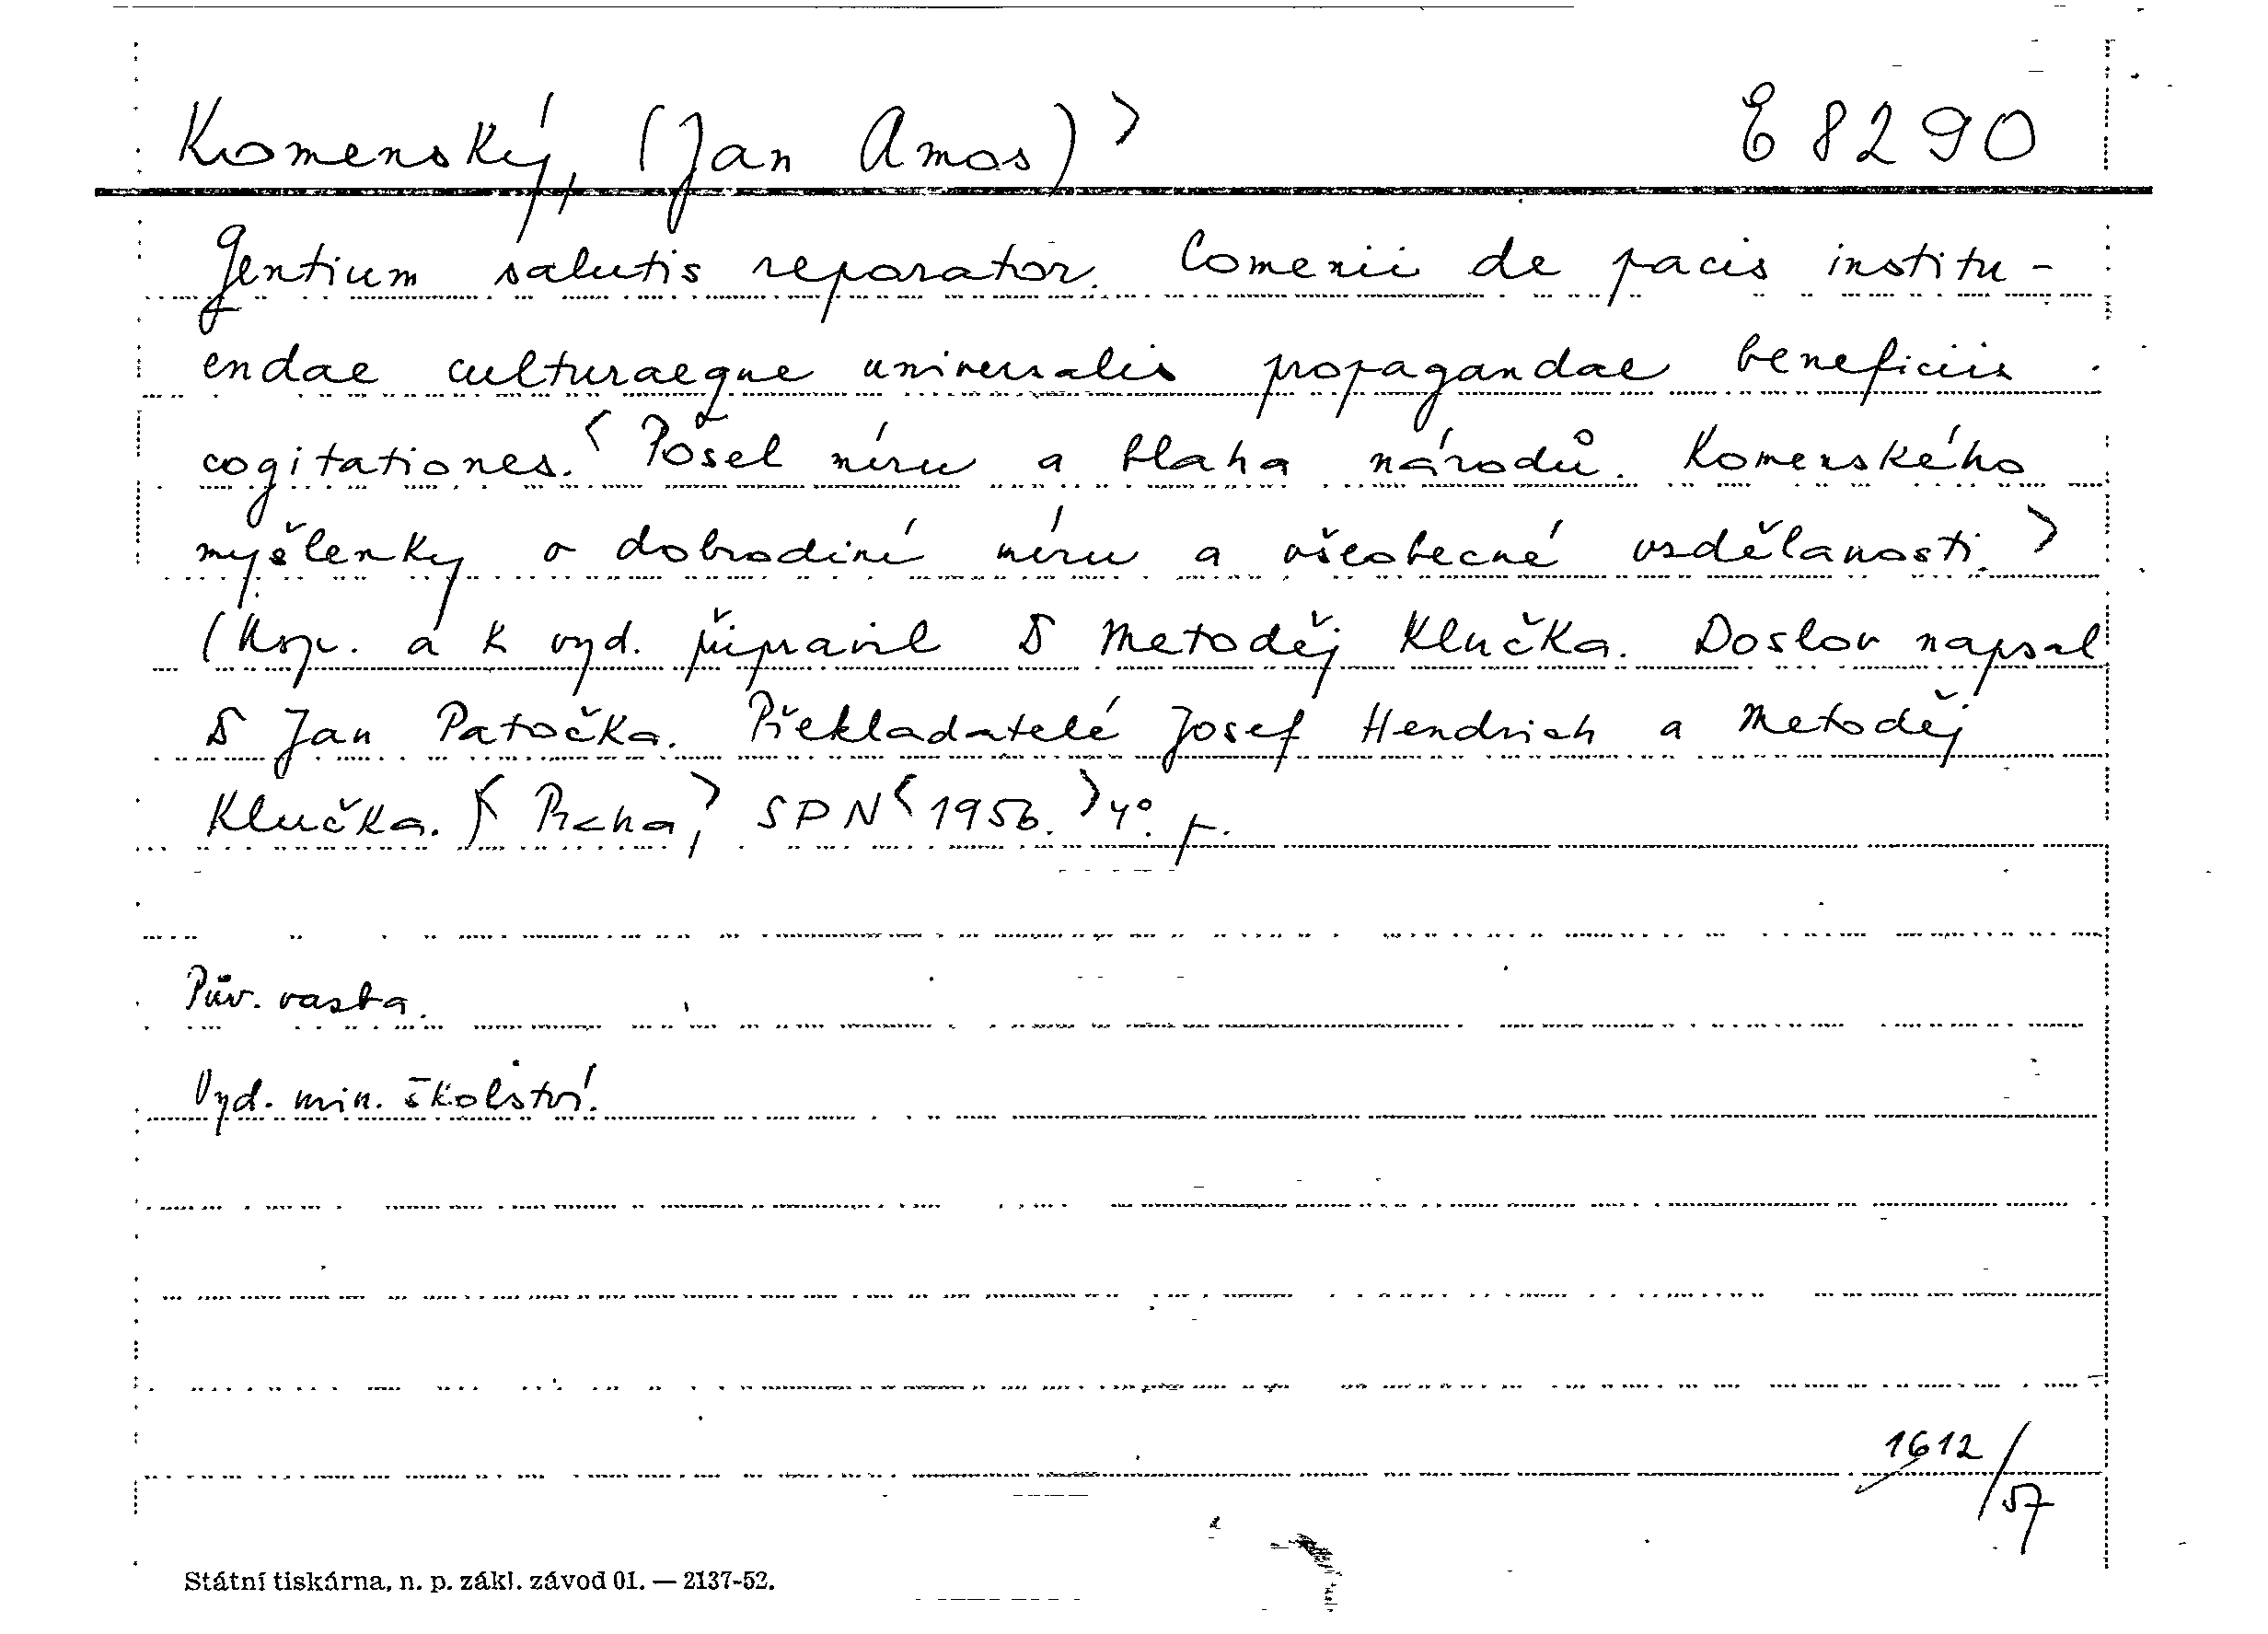 Komenský, (Jan Amos)> E 8290
Gentium salutis reparator. Comenii de pacis institu-
endae culturaeque universalis propagandae beneficiis
cogitationes.< Posel míru a blaha národů. Komenského
myšlenky o dobrodiní míru a všeobecné vzdělanosti.>
(Usp. a k vyd. připravil Metoděj Klučka. Doslov napsal
Jan Patočka. Překladatelé Josef Hendrich a Metoděj
Klučka.)< Praha,> SPN <1956.> 4°. p.
Pův. vazba.
Vyd. min. školství.
1612/57
Státní tiskárna, n. p. zákl. závod 01. — 2137-52.